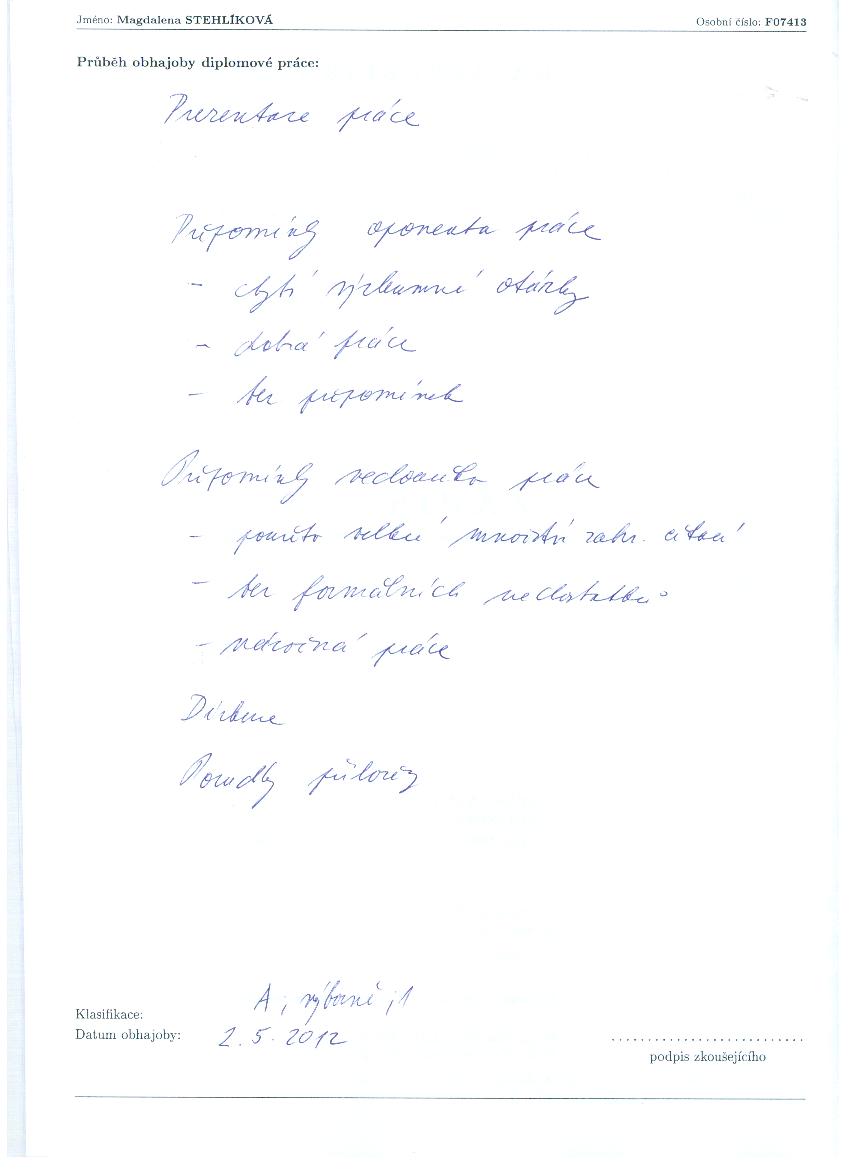 Jméno: Magdalena STEHLÍKOVÁ Osobní číslo: F07413
Průběh obhajoby diplomové práce:
Prezentace práce
Připomínky oponenta práce
- chybí výzkumné otázky
- dobrá práce
- bez připomínek
Připomínky vedoucího práce
- použito velké množství zahr. citací
- bez formálních nedostatků
- náročná práce
Diskuse
Posudky přílohy
Klasifikace: A; výborně; 1
Datum obhajoby: 2. 5. 2012
podpis zkoušejícího